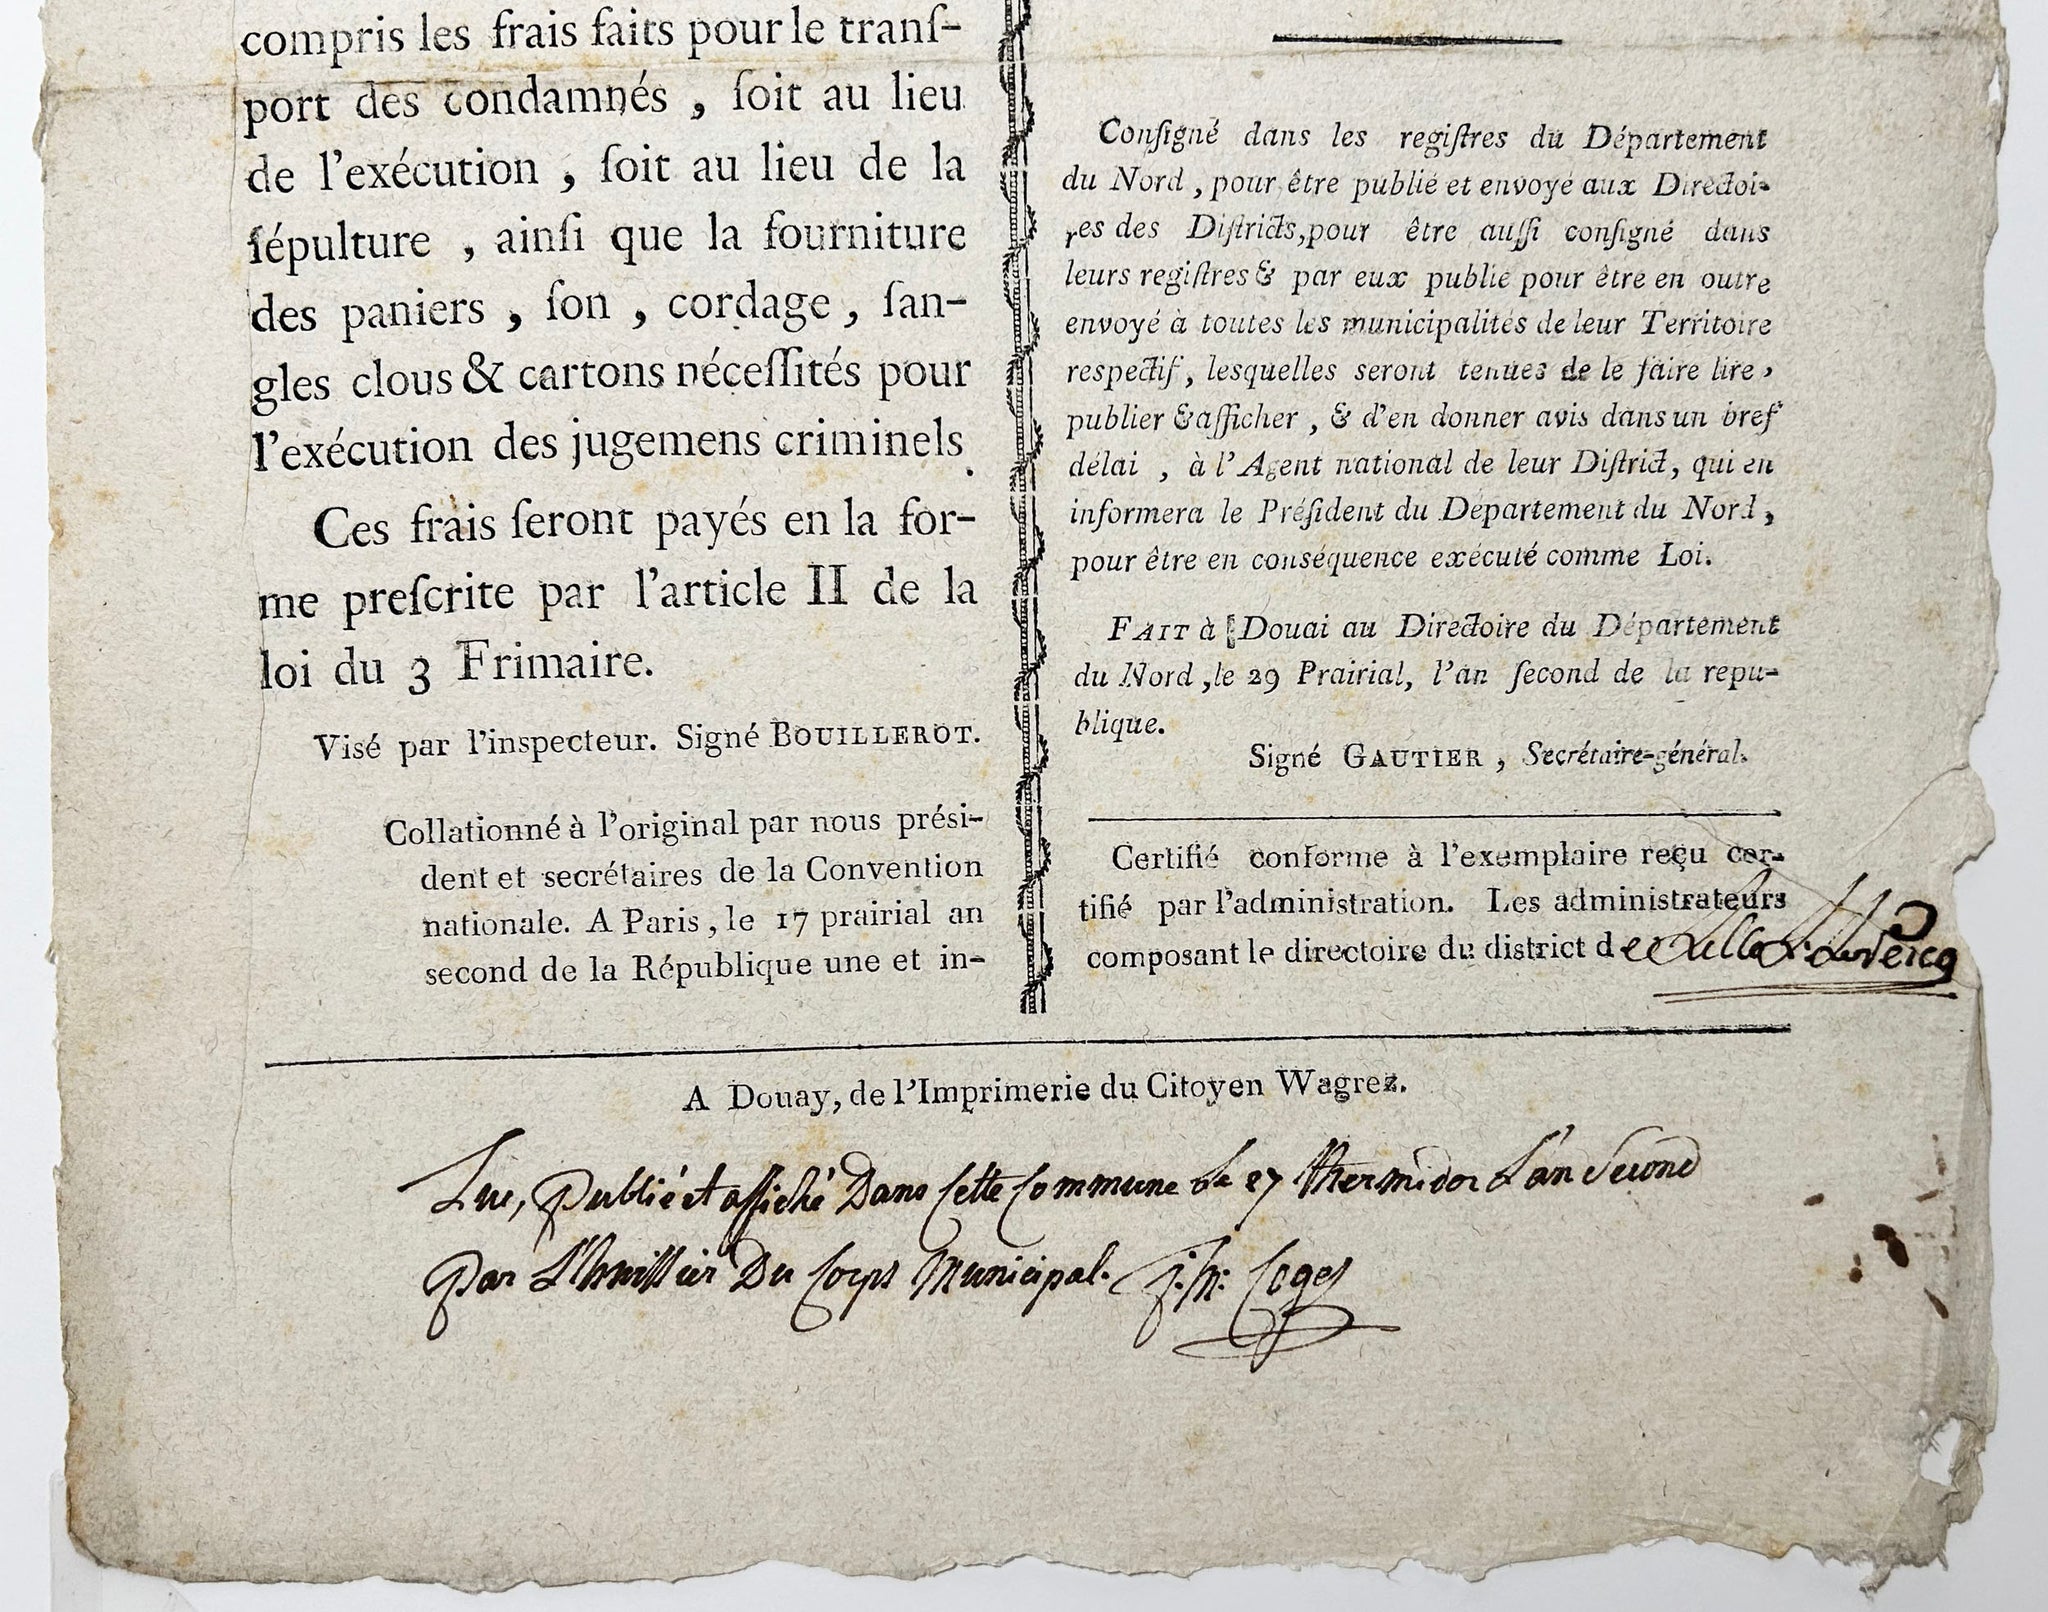 compris les frais faits pour le tranſ-
port des condamnés , ſoit au lieu
de l'exécution , ſoit au lieu de la
ſépulture , ainſi que la fourniture
des paniers , ſon , cordage , ſan-
gles clous & cartons néceſſités pour
l'exécution des jugemens criminels.
Ces frais ſeront payés en la for-
me preſcrite par l'article II de la
loi du 3 Frimaire.
Visé par l'inspecteur. Signé BOUILLEROT.
Collationné à l'original par nous prési-
dent et secrétaires de la Convention
nationale. A Paris, le 17 prairial an
second de la République une et in-
Conſigné dans les regiſtres du Département
du Nord, pour être publié et envoyé aux Directoi-
res des Diſtricts, pour être auſſi conſigné dans
leurs regiſtres & par eux publié pour être en outre
envoyé à toutes les municipalités de leur Territoire
respectif, lesquelles seront tenues de le faire lire,
publier & afficher, & d'en donner avis dans un bref
délai, à l'Agent national de leur Diſtrict, qui en
informera le Préſident du Département du Nord,
pour être en conséquence exécuté comme Loi.
FAIT à Douai au Directoire du Département
du Nord, le 29 Prairial, l'an ſecond de la repu-
blique.
Signé GAUTIER, Secrétaire-général.
Certifié conforme à l'exemplaire reçu cer-
tifié par l'administration. Les administrateurs
composant le directoire du district de Lille
A Douay, de l'Imprimerie du Citoyen Wagrez.
Lue, publié et affiché Dans Cette Commune Le 27 Thermidor L'an Second
Par L'huissier Du Corps Municipal.